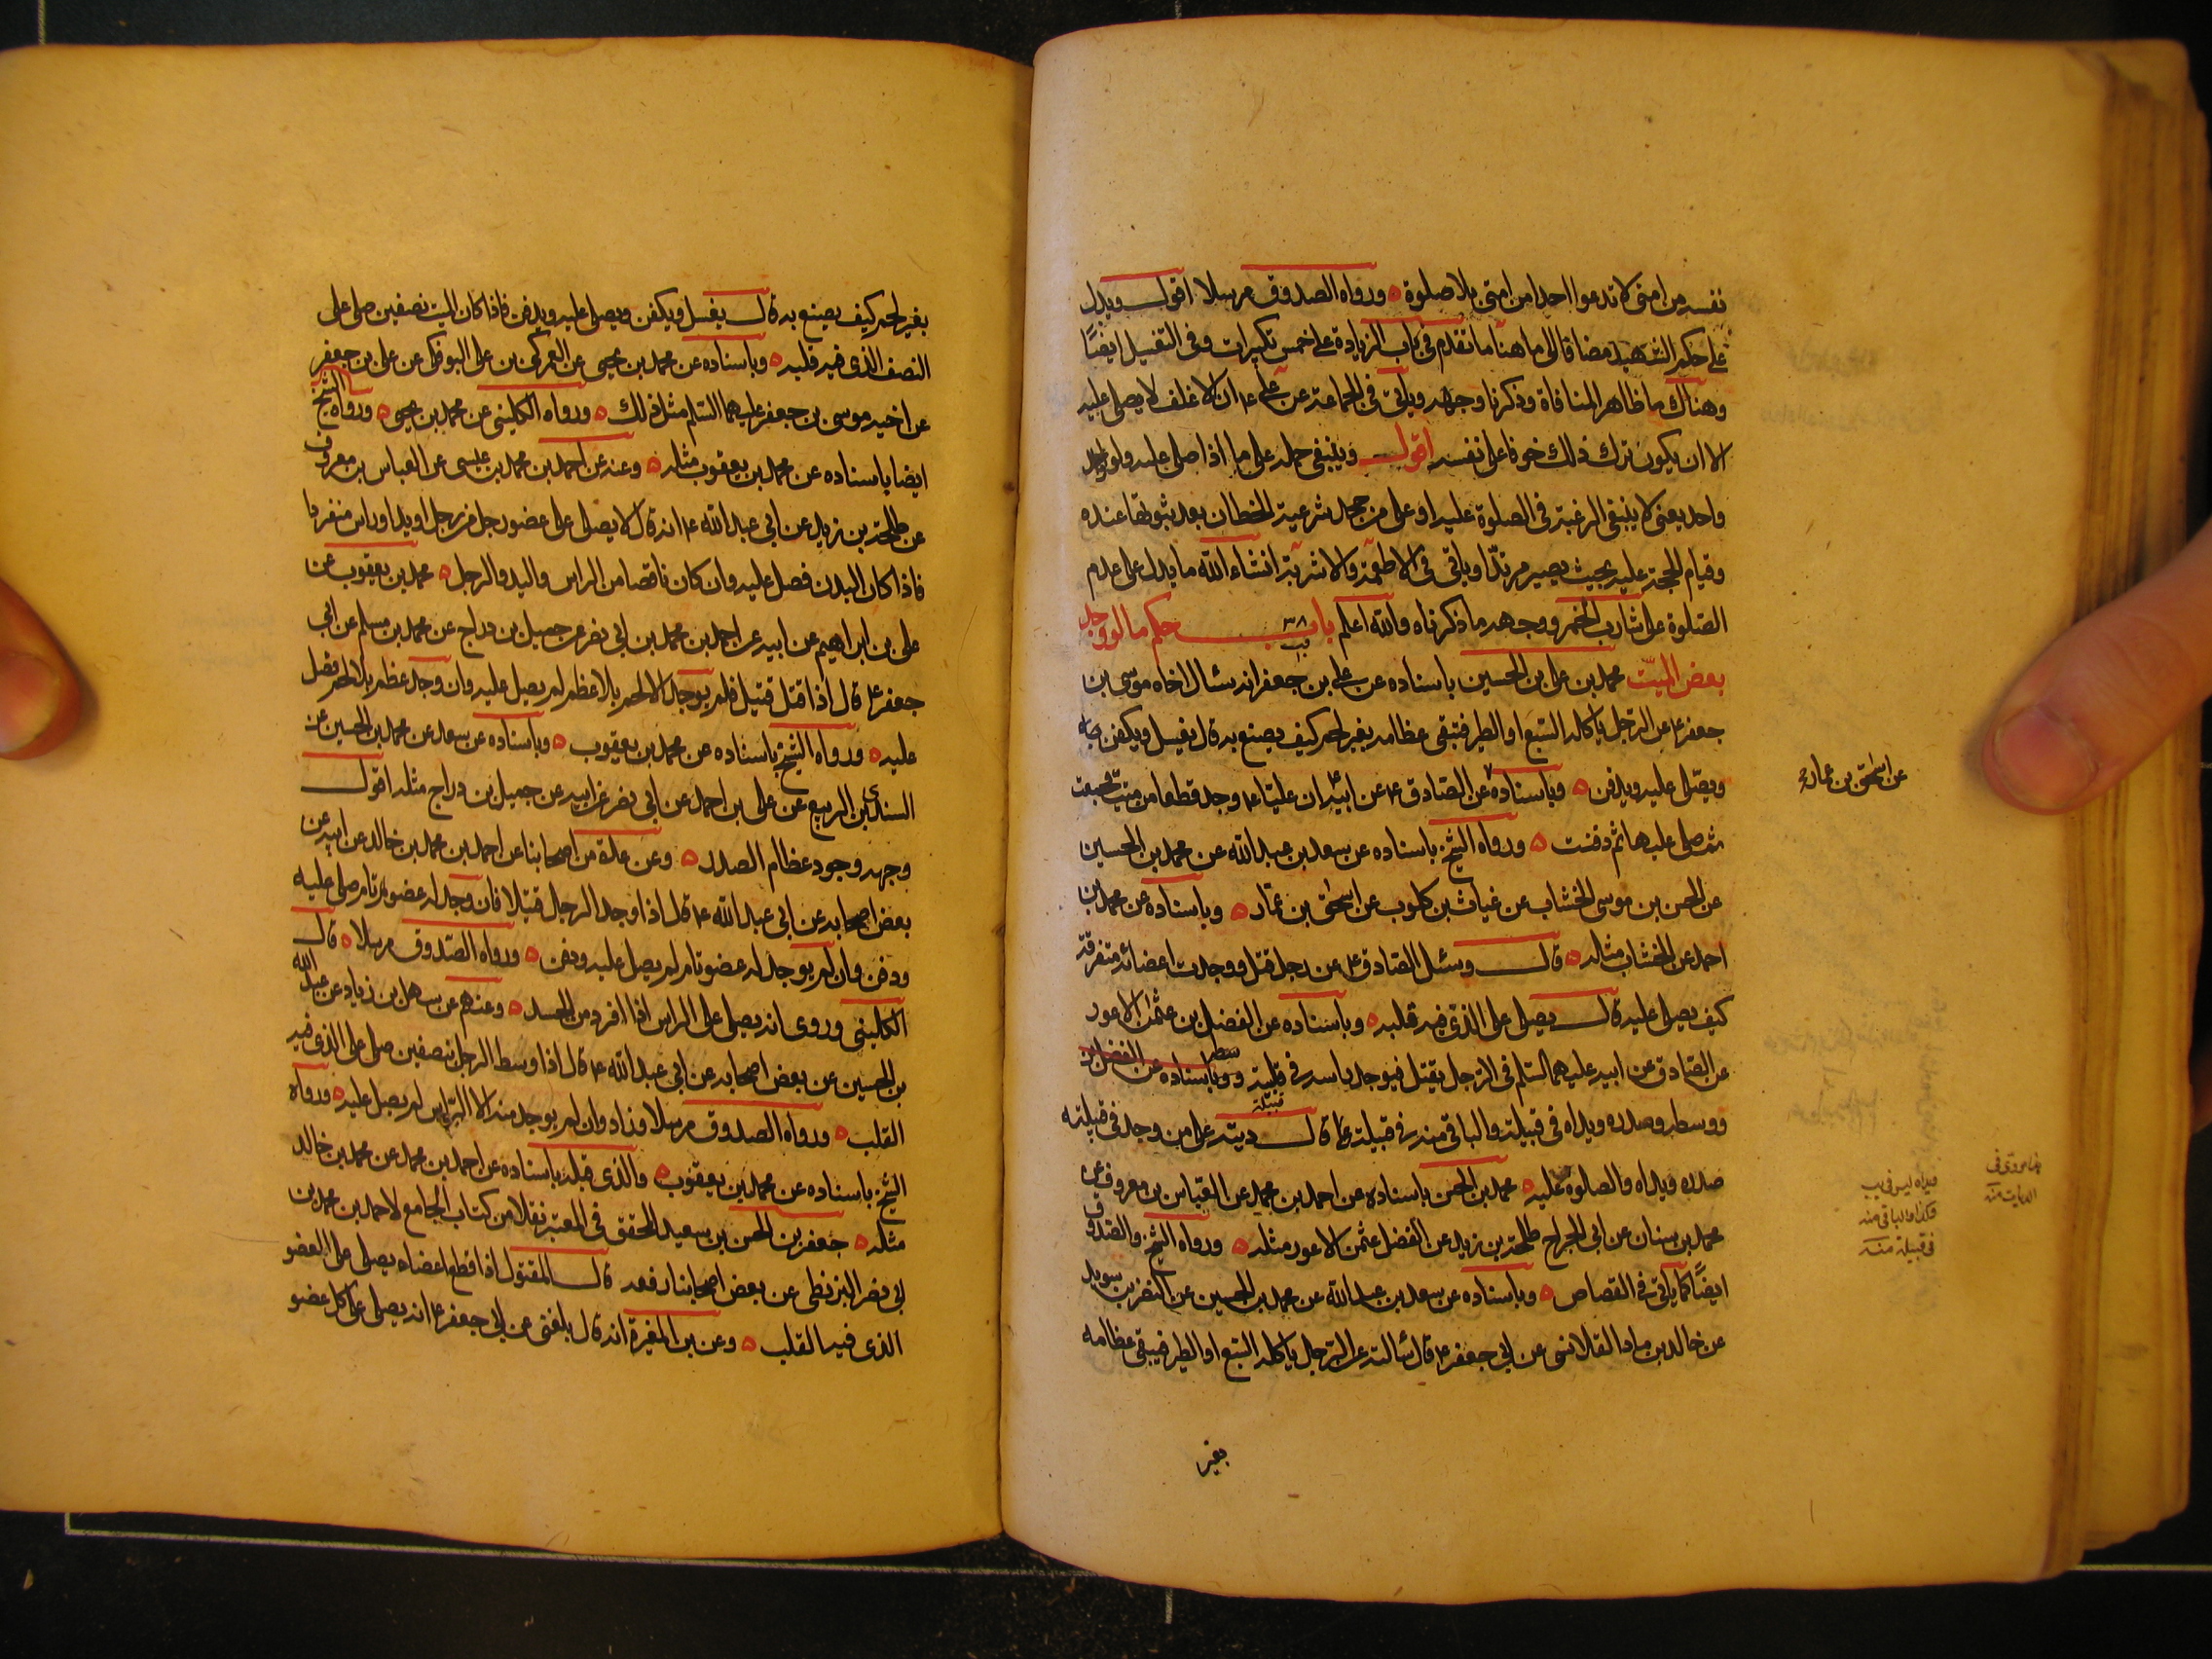 نفسه من امتى لا تدعوا احدا من امتى بلا صلوة ورواه الصدوق مرسلا اقول ويدل
على حكم الشهيد مضافا الى ما هنا ما تقدم فى باب الزيادة على خمس تكبيرات وفى التغسيل ايضًا
وهناك ما ظاهر المنافاة وذكرنا وجهه وياتى فى الجماعة عن على ع ان الاغلف لا يصلى عليه
الا ان يكون ترك ذلك خوفا على نفسه اقول وينبغى حمله على ما اذا صلى عليه ولو
واحد بمعنى لا ينبغى الرغبة فى الصلوة عليه او على من جحد شرعية الختان بعد ثبوتها عنده
وقيام الحجة عليه بحيث يصير مرتدّا وياتى فى الاطعمة والاشربة انشاء الله ما يدل على عدم
الصلوة على شارب الخمر ووجهه ما ذكرناه والله اعلم باب ٣٨ حكم ما لو وجد
بعض الميّت محمد بن على بن الحسين باسناده عن على بن جعفر انه سال اخاه موسى بن
جعفر ع عن الرجل ياكله السّبع او الطير فتبقى عظامه بغير لحم كيف يصنع به قال يغسل ويكفن
ويصلى عليه ويدفن وباسناده عن الصّادق ع عن ابيه ان عليّا ع وجد قطعا من ميت فجمعت
ثم صلى عليها ثم دفنت ورواه الشيخ باسناده عن سعد بن عبد الله عن محمد بن الحسين
عن الحسن بن موسى الخشاب عن غياث بن كلوب عن اسحٰق بن عمّار وباسناده عن محمد بن
احمد عن الخشاب مثله قال وسئل الصّادق ع عن رجل قتل ووجدت اعضائه متفرقة
كيف يصلى عليه قال يصلى على الذى فيه قلبه وباسناده عن الفضل بن عثمٰن الاعور
عن الصّادق عن ابيه عليهما السّلم فى الرّجل يقتل فيوجد راسه فى قبيلة وباسناده عن الفضل بن
ووسطه وصدره ويداه فى قبيلة والباقى منه فى قبيلة قال ديته على من وجد فى قبيلته
صدره ويداه والصلوة عليه محمد بن الحسن باسناده عن احمد بن محمد عن العبّاس بن معروف عن
محمد بن سنان عن ابى الجراح طلحة بن زيد عن الفضل عثمٰن الاعور مثله ورواه الشيخ والصّدوق
ايضًا كما ياتى فى القصاص وباسناده عن سعد بن عبد الله عن محمد بن الحسين عن النضر بن سويد
عن خالد بن ماد القلانسى عن ابى جعفر ع قال سالته عن الرّجل ياكله السّبع او الطير فيبقى عظامه
بغير
عن اسحٰق بن عمار
ويداه ليس فى يب
وكذا والباقى منه
فى قبيلة منه
الديات منه
بغير لحم كيف يصنع به قال يغسل ويكفن ويصلى عليه ويدفن فاذا كان الميت نصفين صلى على
النصف الذى فيه قلبه وباسناده عن محمد بن يحيى عن العمركى بن على البوفكى عن على بن جعفر
عن اخيه موسى بن جعفر عليهما السّلم مثل ذلك ورواه الكلينى عن محمد بن يحيى ورواه الشيخ
ايضا باسناده عن محمد بن يعقوب مثله وعنه عن احمد بن محمد بن عيسى عن العباس بن معروف
عن طلحة بن زيد عن ابى عبد الله ع انه قال لا يصلى على عضو رجل من رجل او يد او راس منفردا
فاذا كان البدن فصل عليه وان كان ناقصا من الراس واليد والرجل محمد بن يعقوب عن
على بن ابراهيم عن ابيه عن احمد بن محمد بن ابى نصر عن جميل بن دراج عن محمد بن مسلم عن ابى
جعفر ع قال اذا قتل قتيل فلم يوجد الا لحم بلا عظم لم يصل عليه وان وجد عظم بلا لحم فصل
عليه ورواه الشيخ باسناده عن محمد بن يعقوب وباسناده عن سعد عن محمد بن الحسين عن
السندى بن الربيع عن على بن احمد عن ابى نصر عن ابيه عن جميل بن دراج مثله اقول
وجهه وجود عظام الصدر وعن عدة من اصحابنا عن احمد بن محمد بن خالد عن ابيه عن
بعض اصحابه عن ابى عبد الله ع قال اذا وجد الرجل قتيلا فان وجد له عضو تام صلى عليه
ودفن وان لم يوجد له عضو تام لم يصل عليه ودفن ورواه الصّدوق مرسلا قال
الكلينى وروى انه يصلى على الراس اذا افرد من الجسد وعنهم عن سهل بن زياد عن عبد الله
بن الحسين عن بعض اصحابه عن ابى عبد الله ع قال اذا وسط الرجل نصفين صلى على الذى فيه
القلب ورواه الصدوق مرسلا وزاد وان لم يوجد منه الا الرّاس لم يصل عليه ورواه
الشيخ باسناده عن محمد بن يعقوب والذى قبله باسناده عن احمد بن محمد عن محمد بن خالد
مثله جعفر بن الحسن بن سعيد المحقق فى المعتبر نقلا من كتاب الجامع لاحمد بن محمد بن
ابى نصر البزنطى عن بعض اصحابنا رفعه قال المقتول اذا قطع اعضاه يصلى على العضو
الذى فيه القلب وعن بن المغيرة انه قال بلغنى عن ابى جعفر ع انه يصلى على كل عضو